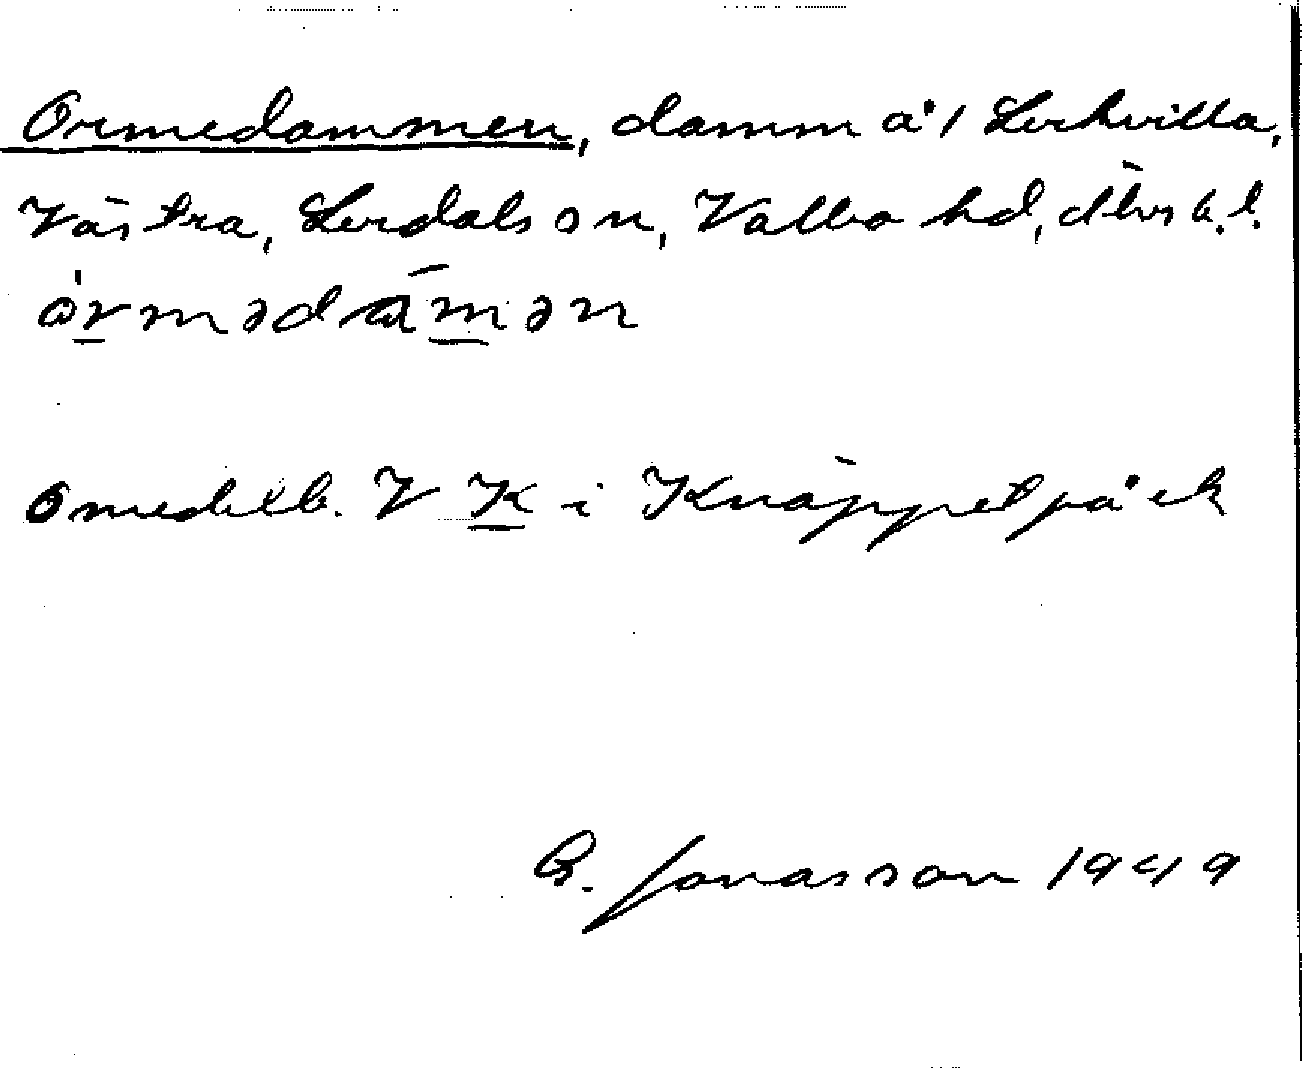 Ormedammen, damm å 1 Lerkvilla,
Västra, Lerdals sn, Valbo hd, Älvsb. l.
òrmədàmən
Omedelb. V K i Knäppet på ek
G. Jonasson 1949